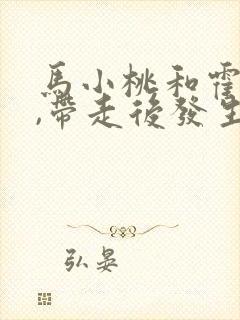 馬小桃和霍
,帶走後發生
弘晏